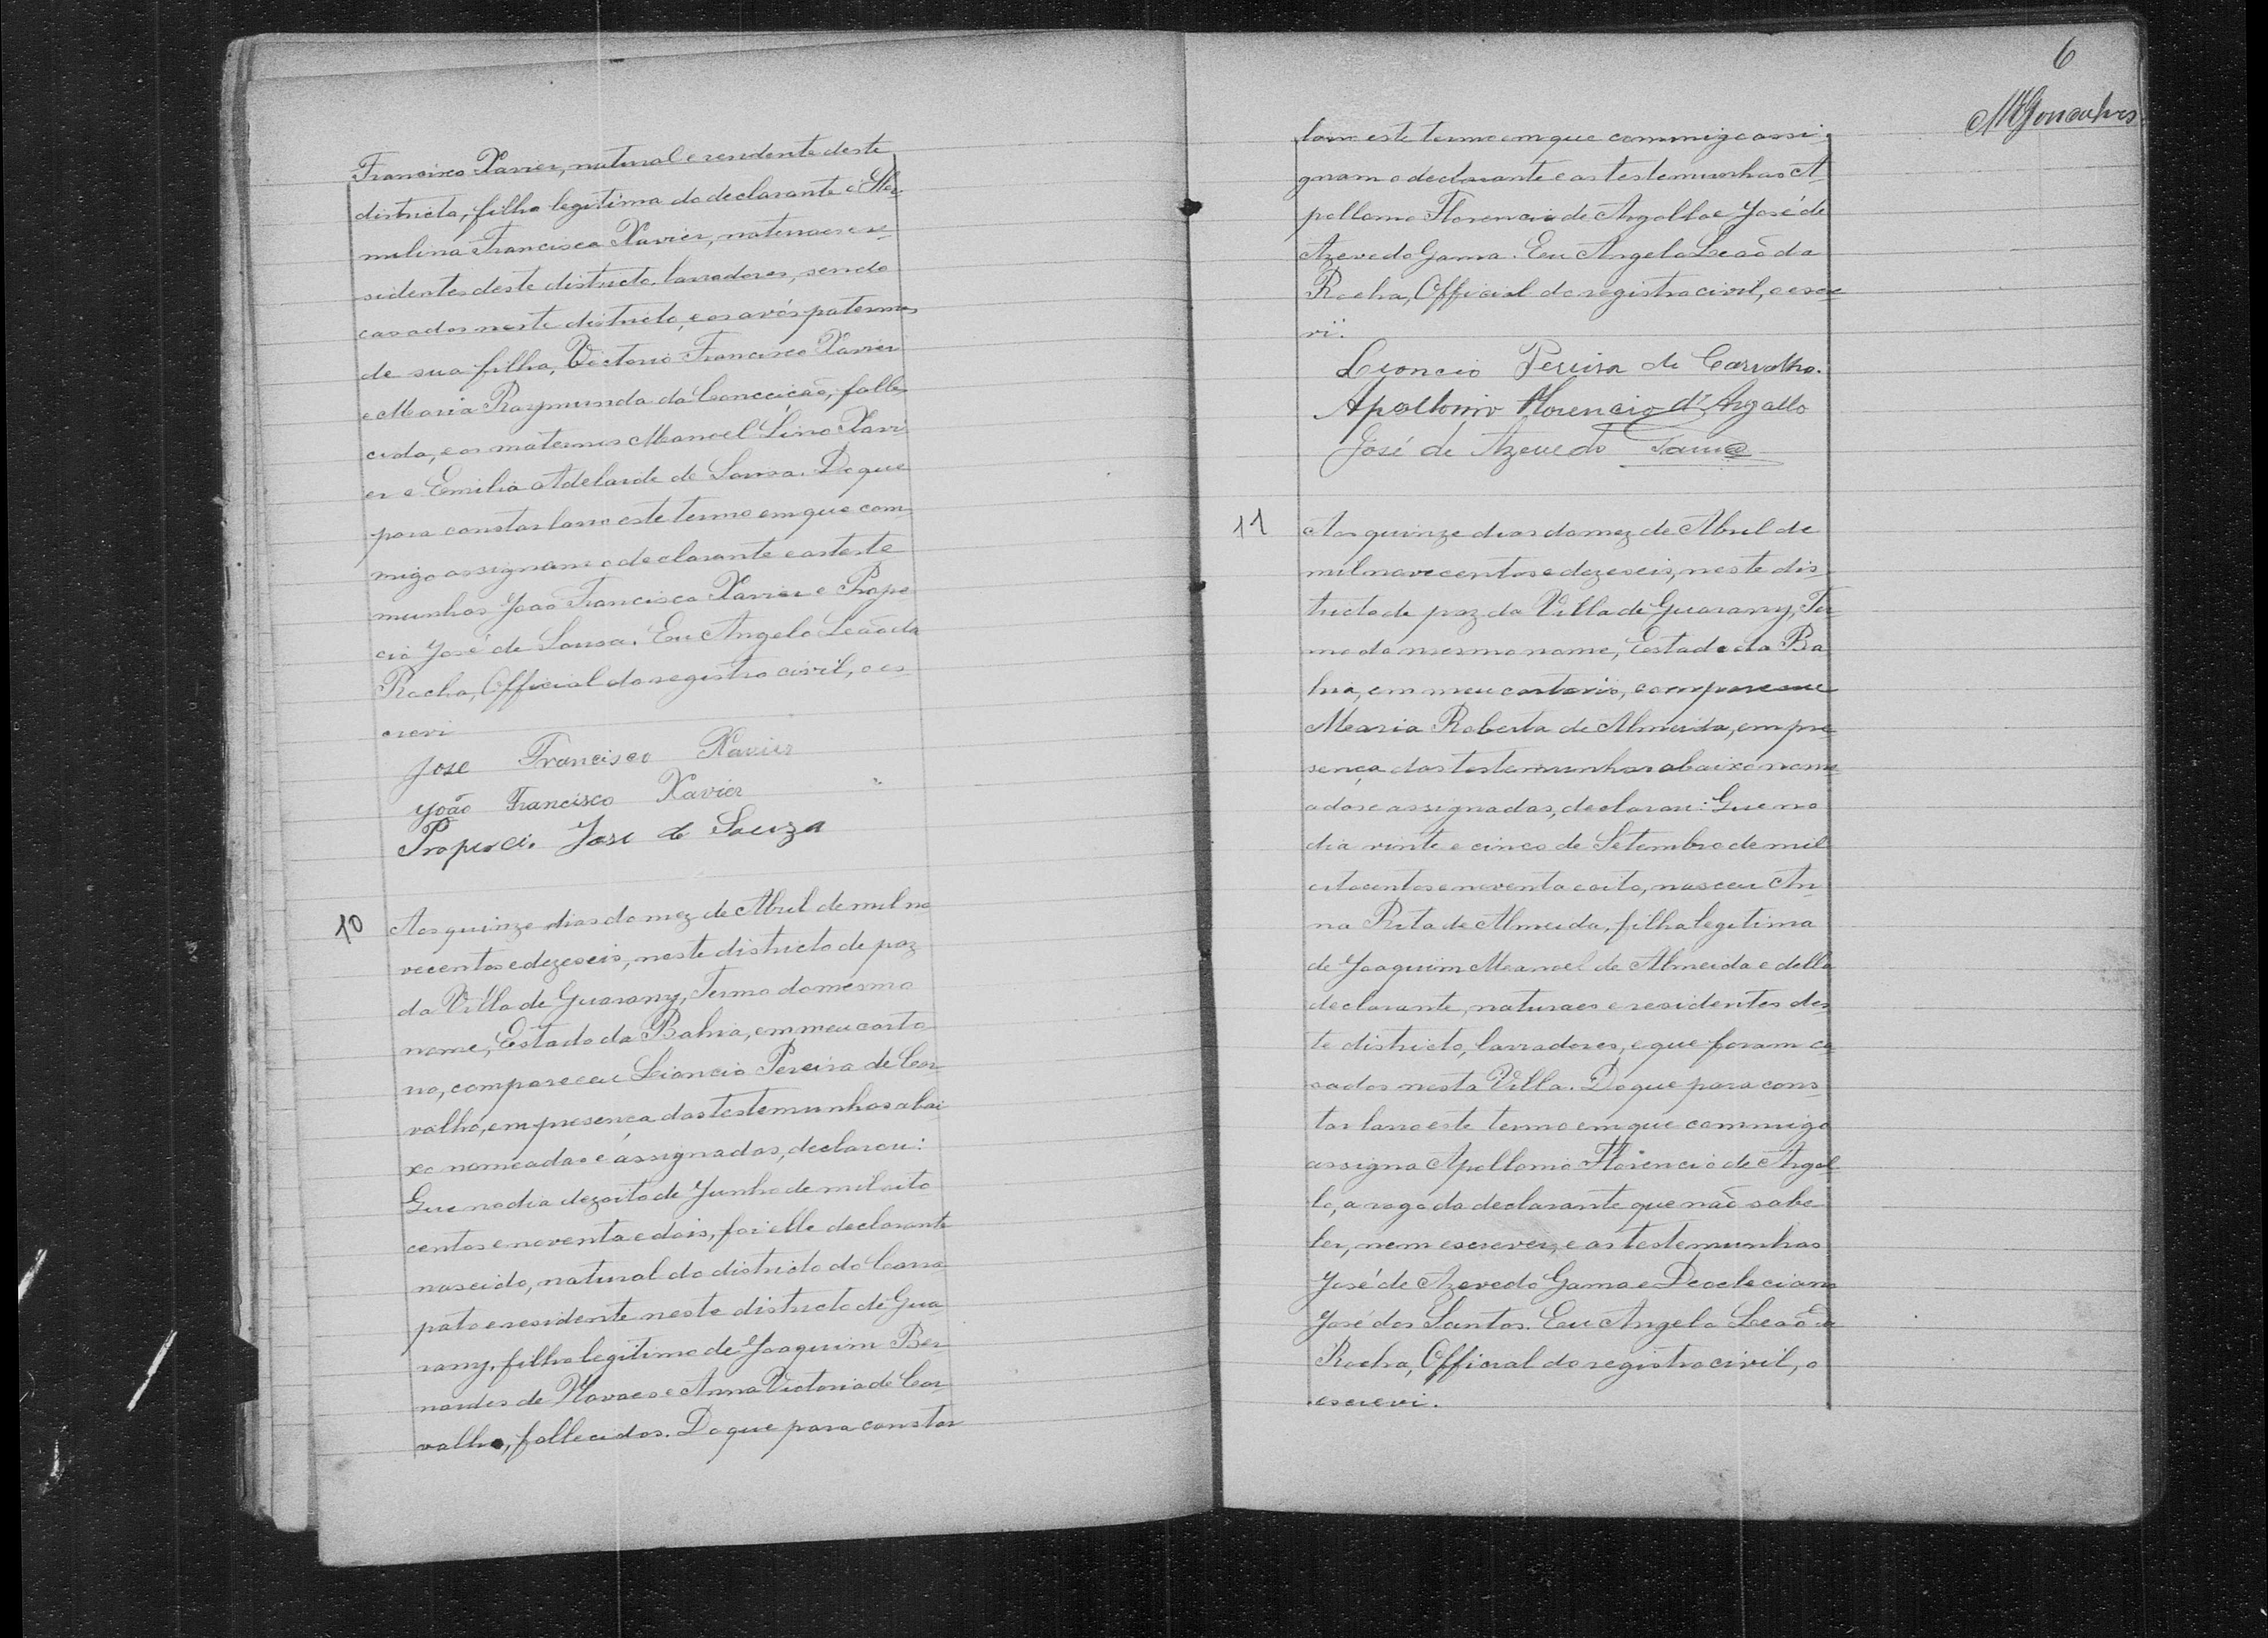 Francisco Xavier, natural e residente deste
districto, filha legitima do declarante e Her-
melina Francisca Xavier, naturaes e re-
sidentes deste districto, lavradores, sendo
casados neste districto, e os avós paternos
de sua filha, Victorio Francisco Xavier
e Maria Raymunda da Conceição, falle-
cida, e os maternos Manoel Lino Xavi-
er e Emilia Adelaide de Sousa. Do que
para constar lavro este termo em que com-
migo assignam o declarante e as teste
munhas João Francisco Xavier e Prope
cio José de Sousa. Eu Angelo Leão da
Rocha, Official do registro civil, o es-
crevi
José Francisco Xavier
João Francisco Xavier
José de Souza
10 Aos quinze dias do mez de Abril de mil no
vecentos e dezeseis, neste districto de paz
da Villa de Guarany, Termo do mesmo
nome, Estado da Bahia, em meu carto
rio, compareceu Leoncio Pereira de Car-
valho, em presença das testemunhas abai
xo nomeadas e assignadas, declarou:
Que no dia dezoito de Junho de mil oito
centos e noventa e dois, foi elle declarante
nascido, natural do districto do Carra
pato e residente neste districto de Gua
rany, filho legitimo de Joaquim Ber
nardes de Novaes e Anna Victoria de Car-
valho, fallecidos. Do que para constar
6
MGonçalves
lavro este termo em que commigo assi-
gnam o declarante e as testemunhas A-
pollonio Florencio de Argollo e José de
Azevedo Gama. Eu Angelo Leão da
Rocha, Official do registro civil, o escre
vi.
Leoncio Pereira de Carvalho.
Apollonio Florencio d'Argollo
José de Azevedo Gama
11 Aos quinze dias do mez de Abril de
mil novecentos e dezeseis, neste dis-
tricto de paz da Villa de Guarany, Ter-
mo do mesmo nome, Estado da Ba
hia, em meu cartorio, compareceu
Maria Roberta de Almeida, em pre-
sença das testemunhas abaixo nome-
adas e assignadas, declarou: Que no
dia vinte e cinco de Setembro de mil
oitocentos e noventa e oito, nasceu An-
na Rita de Almeida, filha legitima
de Joaquim Manoel de Almeida e della
declarante, naturaes e residentes des-
te districto, lavradores, e que foram ca-
sados nesta Villa. Do que para cons-
tar lavro este termo em que commigo
assigna Apollonio Florencio de Argol-
lo, a rogo da declarante que não sabe
ler, nem escrever, e as testemunhas
José de Azevedo Gama e Deocleciano
José dos Santos. Eu Angelo Leão da
Rocha, Official do registro civil, o
escrevi.